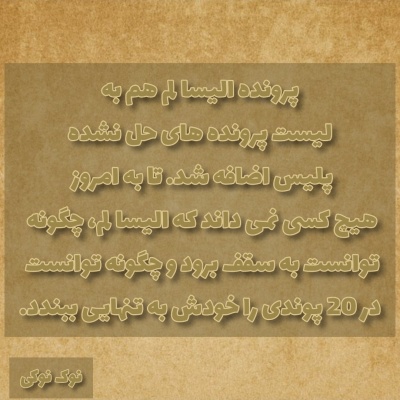 پرونده الیسا لم هم به
لیست پرونده های حل نشده
پلیس اضافه شد. تا به امروز
هیچ کسی نمی داند که الیسا لم، چگونه
توانست به سقف برود و چگونه توانست
در 20 پوندی را خودش به تنهایی ببندد.
نوک نوکی